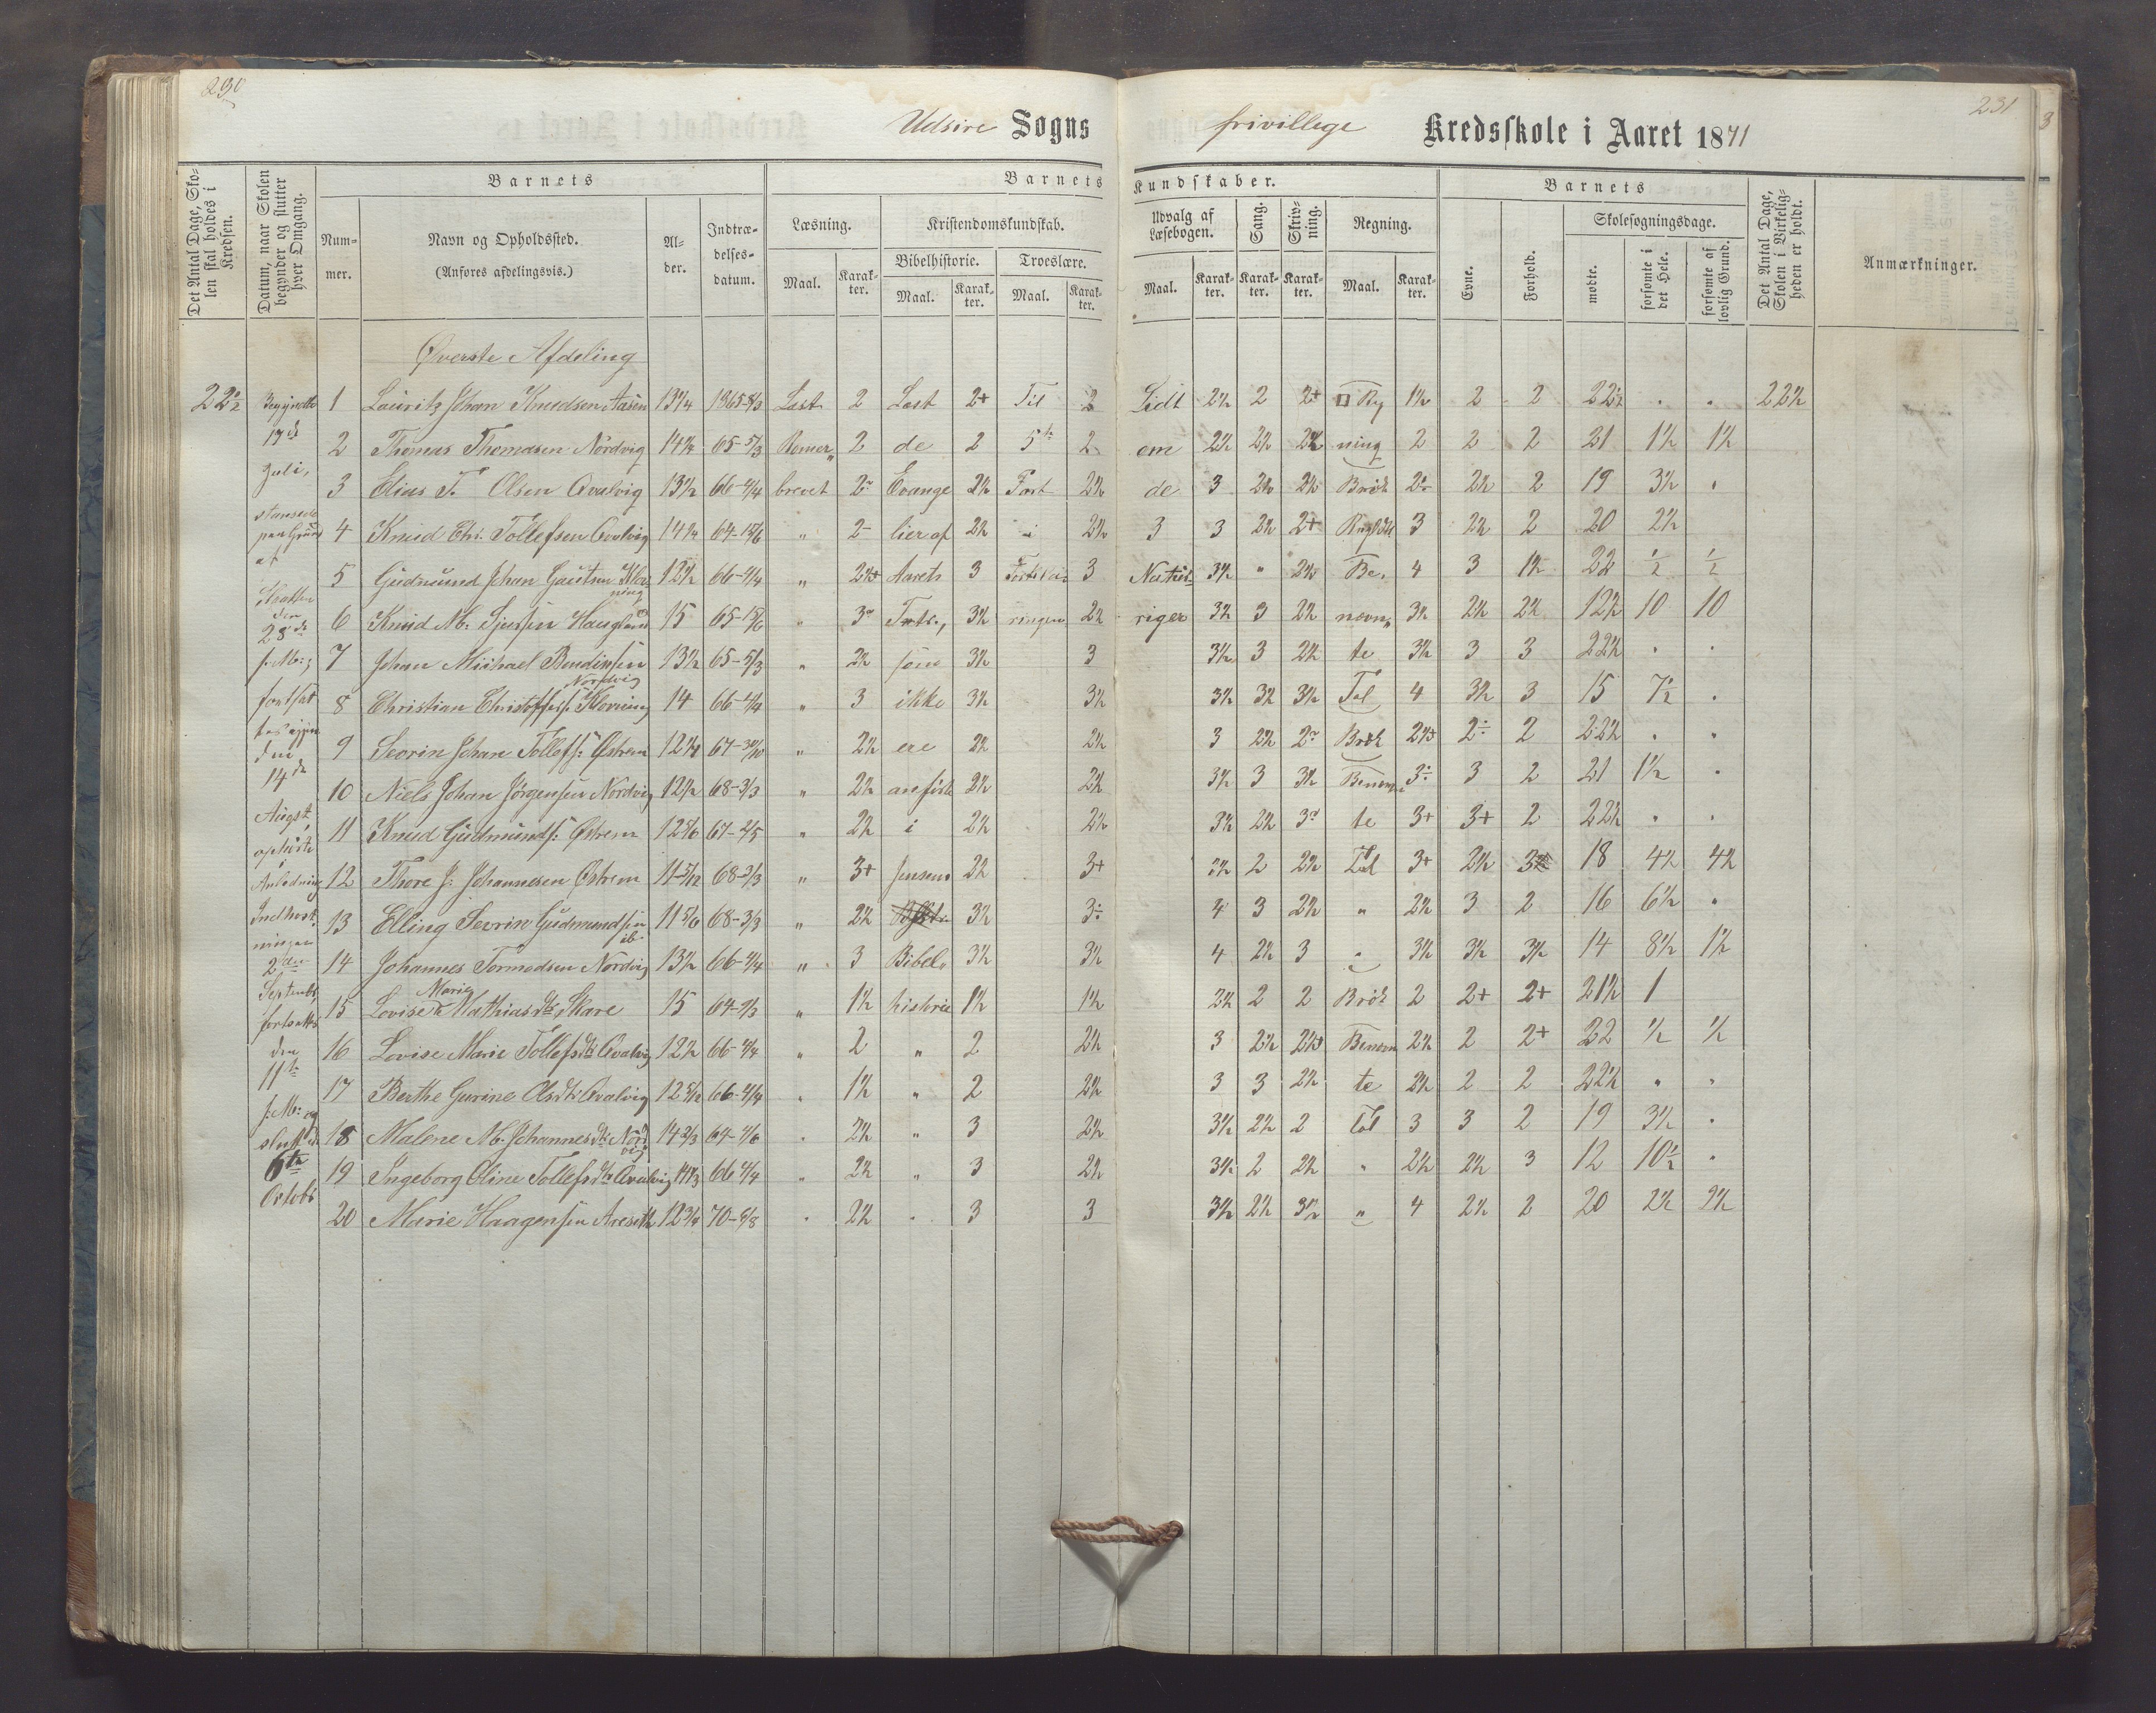 230
Udsire Sogns
frivillege Kredsskole i Aaret 1871
231
Det Antal Dage, Skolen skal holdes i Kredsen.
Datum, naar Skolen begynder og slutter hver Omgang.
Barnets
Num-
mer.
Navn og Opholdssted.
(Anføres afdelingsvis.)
Al-
der.
Indtræ-
delses-
datum.
Barnets
Læsning.
Maal.
Karak-
ter.
Kristendomskundskab.
Bibelhistorie.
Maal.
Karak-
ter.
Troeslære.
Maal.
Karak-
ter.
Kundskaber.
Udvalg af
Læsebogen.
Maal.
Karak-
ter.
Sang.
Karak-
ter.
Skriv-
ning.
Karak-
ter.
Regning.
Maal.
Karak-
ter.
Barnets
Evne.
Forhold.
Skolesøgningsdage.
mødte.
forsømte i det Hele.
forsømte af lovlig Grund.
Det Antal Dage, Skolen i Virkeligheden er holdt.
Anmærkninger.
Øverste Afdeling
22½ Begyndte 1 Lauritz Johan Knudsen Aasen 13¼ 1865-5/3 Læst 2 Læst 2+ Til 2 Lidt 2½ 2 2+ □ Rg 1½ 2 2 22½ . . 22½
17de 2 Thomas Thomasen Nordvig 14¼ 65-5/3 Romer„ 2 de 2 5te 2 om 2½ 2½ 2½ ning 2 2 2 21 1½ 1½
Juli, 3 Elias T. Olsen Qvalvig 13½ 66-4/4 brevet 2 Evange 2½ Part 2½ de 3 2½ 2½ Brök 2 2½ 2 19 3½ .
4 Knud Chr. Tollefsen Qvalvig 14¼ 64-15/6 „ 2- lier af 2½ i 2½ 3 3 2½ 2+ 3 2½ 2 20 2½
af 5 Gudmund Johan Gautsen Klovning 12½ 66-4/4 „ 2½ Aarets 3 3 Natur- 3½ „ 2½ Be- 4 3 1½ 22 ½ ½
den 28de 6 Knud M. Sjursen Haugland 15 65-15/6 „ 3 3½ ringen 2½ riger 3½ 3 2½ nevn„ 3½ 2½ 2½ 12½ 10 10
f: M:; 7 Johan Michael Bendixsen Nordvig 13½ 65-5/3 „ 2½ som 3½ 3 3½ 3 2½ te 3½ 3 3 22½ . .
fortsat 8 Christian Christoffers: Klovning 14 66-4/4 „ 3 ikke 3½ 3½ 3½ 3½ 3½ Tal 4 3½ 3 15 7½ .
den 9 Sevrin Johan Tollefs: Østrem 12¼ 67-30/10 „ 2½ ere 2½ 2½ 3 2½ 2 Brök 2½ 2÷ 2 22½ . .
14de 10 Niels Johan Jörgensen Nordvig 12½ 68-3/3 „ 2½ anførte 2½ 2½ 3½ 3 3½ Benevn 3÷ 3 2 21 1½ .
Augst 11 Knud Gudmunds: Østrem 12 5/6 67-2/5 „ 2½ i 2½ 2½ 3½ 2½ 3 te 3+ 3+ 2 22½ . .
ophörte i Anledning 12 Thore J: Johannesen Østrem 11 5/12 68-3/3 „ 3+ Jensens 2½ 3+ 3½ 2 2½ Tal 3+ 2½ 3 18 4½ 4½
Indhøstningen 13 Elling Sevrin Gudmundsen ib. 11 5/6 68-3/3 „ 2½ 3½ 3÷ 4 3 2½ „ 2½ 3 2 16 6½ .
2den 14 Johannes Tormodsen Nordvig 13½ 66-4/4 „ 3 Bibel„ 3½ 3½ 4 2½ 3 „ 3½ 3½ 3½ 14 8½ 1½
Septembr fortsattes 15 Lovise Marie Mathiasdtr Skare 15 64-3/3 „ 1½ historie 1½ 1½ 2½ 2 2 Brök 2 2+ 2+ 21½ 1
den 16 Lovise Marie Tollefsdtr Qvalvig 12½ 66-4/4 „ 2 „ 2 2½ 3 2½ 2½ Benevn 2½ 2 2+ 22 ½ ½
11te 17 Berthe Gurine Olsdtr Qvalvig 12 5/12 66-4/4 „ 1½ „ 2 2½ 3 3 2½ te 2½ 2 2 22½ „ „
f: M: og sluttet 18 Malene M. Johannesdtr Nordvig 14 2/3 64-4/6 „ 2½ „ 3 2½ 3½ 2½ 2 Tal 3 3 2 19 3½ .
6te 19 Ingeborg Oline Tollefsdtr Qvalvig 66 4/4 „ 2½ „ 3 2½ 3½ 2 2½ „ 2½ 2½ 3 12 10½ .
Octobr
20 Marie Haagensen 12¾ 70-8/8 „ 2½ „ 3 3 3½ 2½ 3½ „ 4 2½ 2 20 2½ 2½